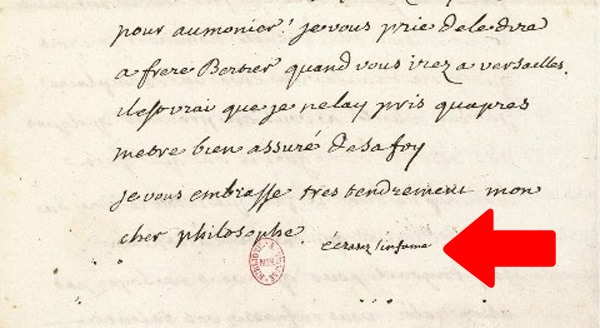 pour aumonier! je vous prie de le dire
a frere Bertier quand vous irez a versailles.
il est vrai que je ne lay pris quapres
metre bien assuré de sa foy
je vous embrasse tres tendrement mon
cher philosophe.
écrasez l'infame